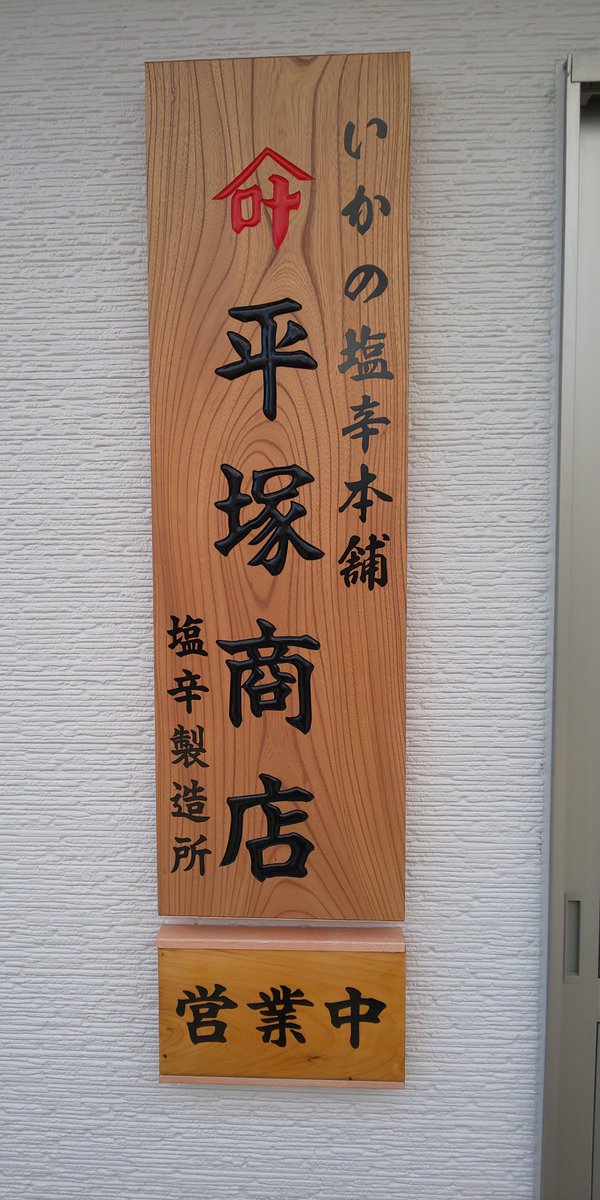 いかの塩辛本舗
叶
平塚商店
塩辛製造所
営業中